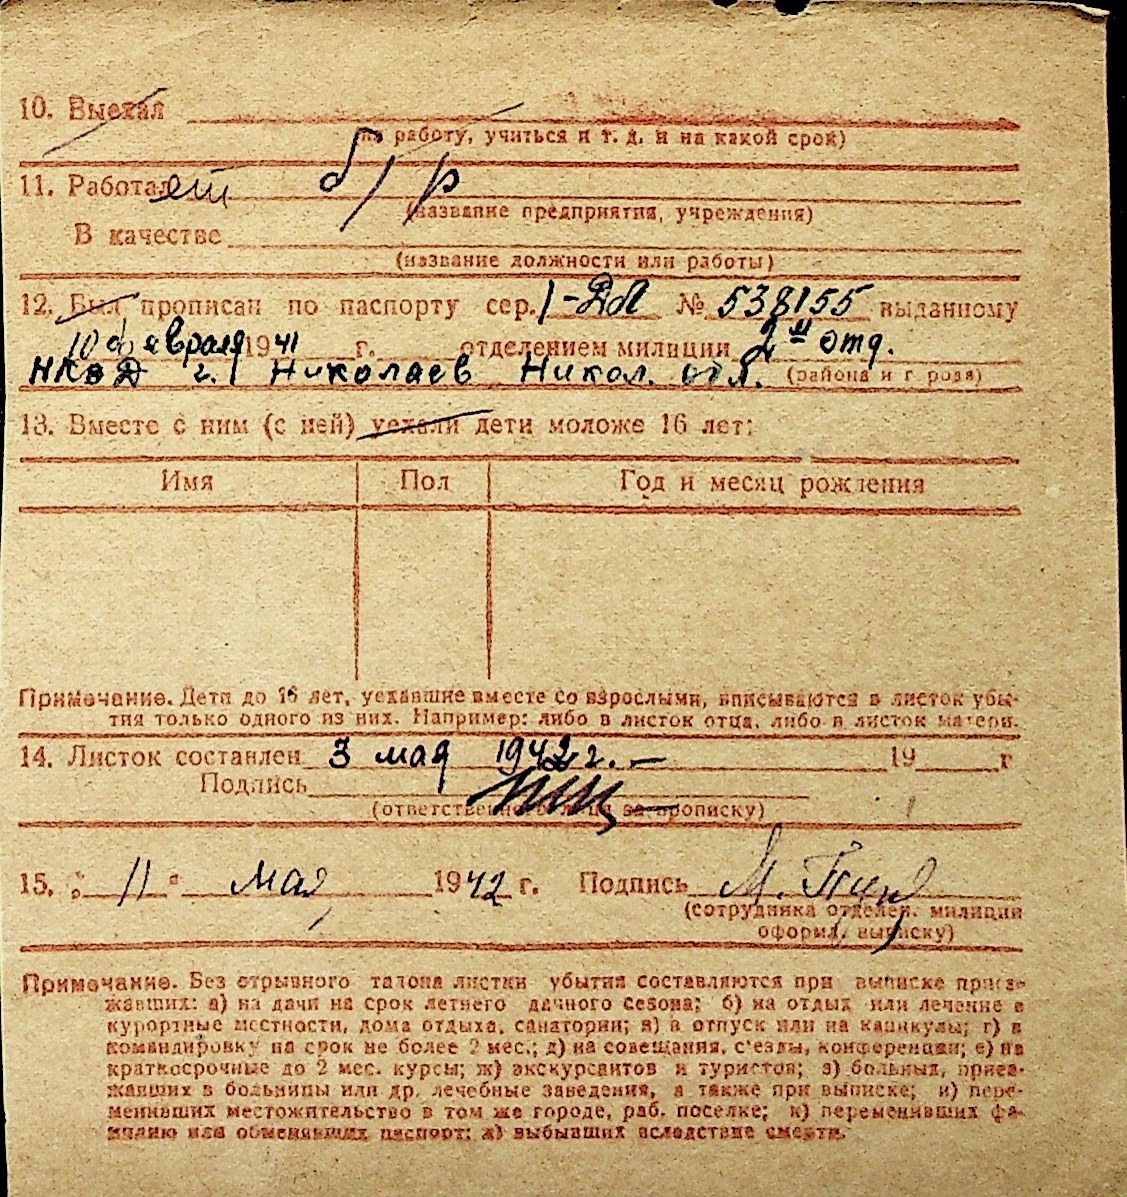 10. Выехал
(на работу, учиться и т. д. и на какой срок)
11. Работает б/р
(название предприятия, учреждения)
В качестве
(название должности или работы)
12. Был прописан по паспорту сер. № 538155 выданному
10 февраля 1941 г. отделением милиции 2 отд.
НКВД г. Николаев Никол. обл. (района и города)
13. Вместе с ним (с ней) уехали дети моложе 16 лет:
Имя Пол Год и месяц рождения
Примечание. Дети до 16 лет, уехавшие вместе со взрослыми, вписываются в листок убы-
тия только одного из них. Например: либо в листок отца, либо в листок матери.
14. Листок составлен 3 мая 1942 г. — 19 г
Подпись
(ответственного лица за прописку)
15. „ 11 " мая 1942 г. Подпись
(сотрудника отделен. милиции
оформ. выписку)
Примечание. Без отрывного талона листки убытия составляются при выписке приез-
жавших: а) на дачи на срок летнего дачного сезона; б) на отдых или лечение в
курортные местности, дома отдыха, санатории; в) в отпуск или на каникулы; г) в
командировку на срок не более 2 мес.; д) на совещания, с'езды, конференции; е) на
краткосрочные до 2 мес. курсы; ж) экскурсантов и туристов; з) больных, приез-
жавших в больницы или др. лечебные заведения, а также при выписке; и) пере-
менивших местожительство в том же городе, раб. поселке; к) переменивших фа-
милию или обменявших паспорт; л) выбывших вследствие смерти.